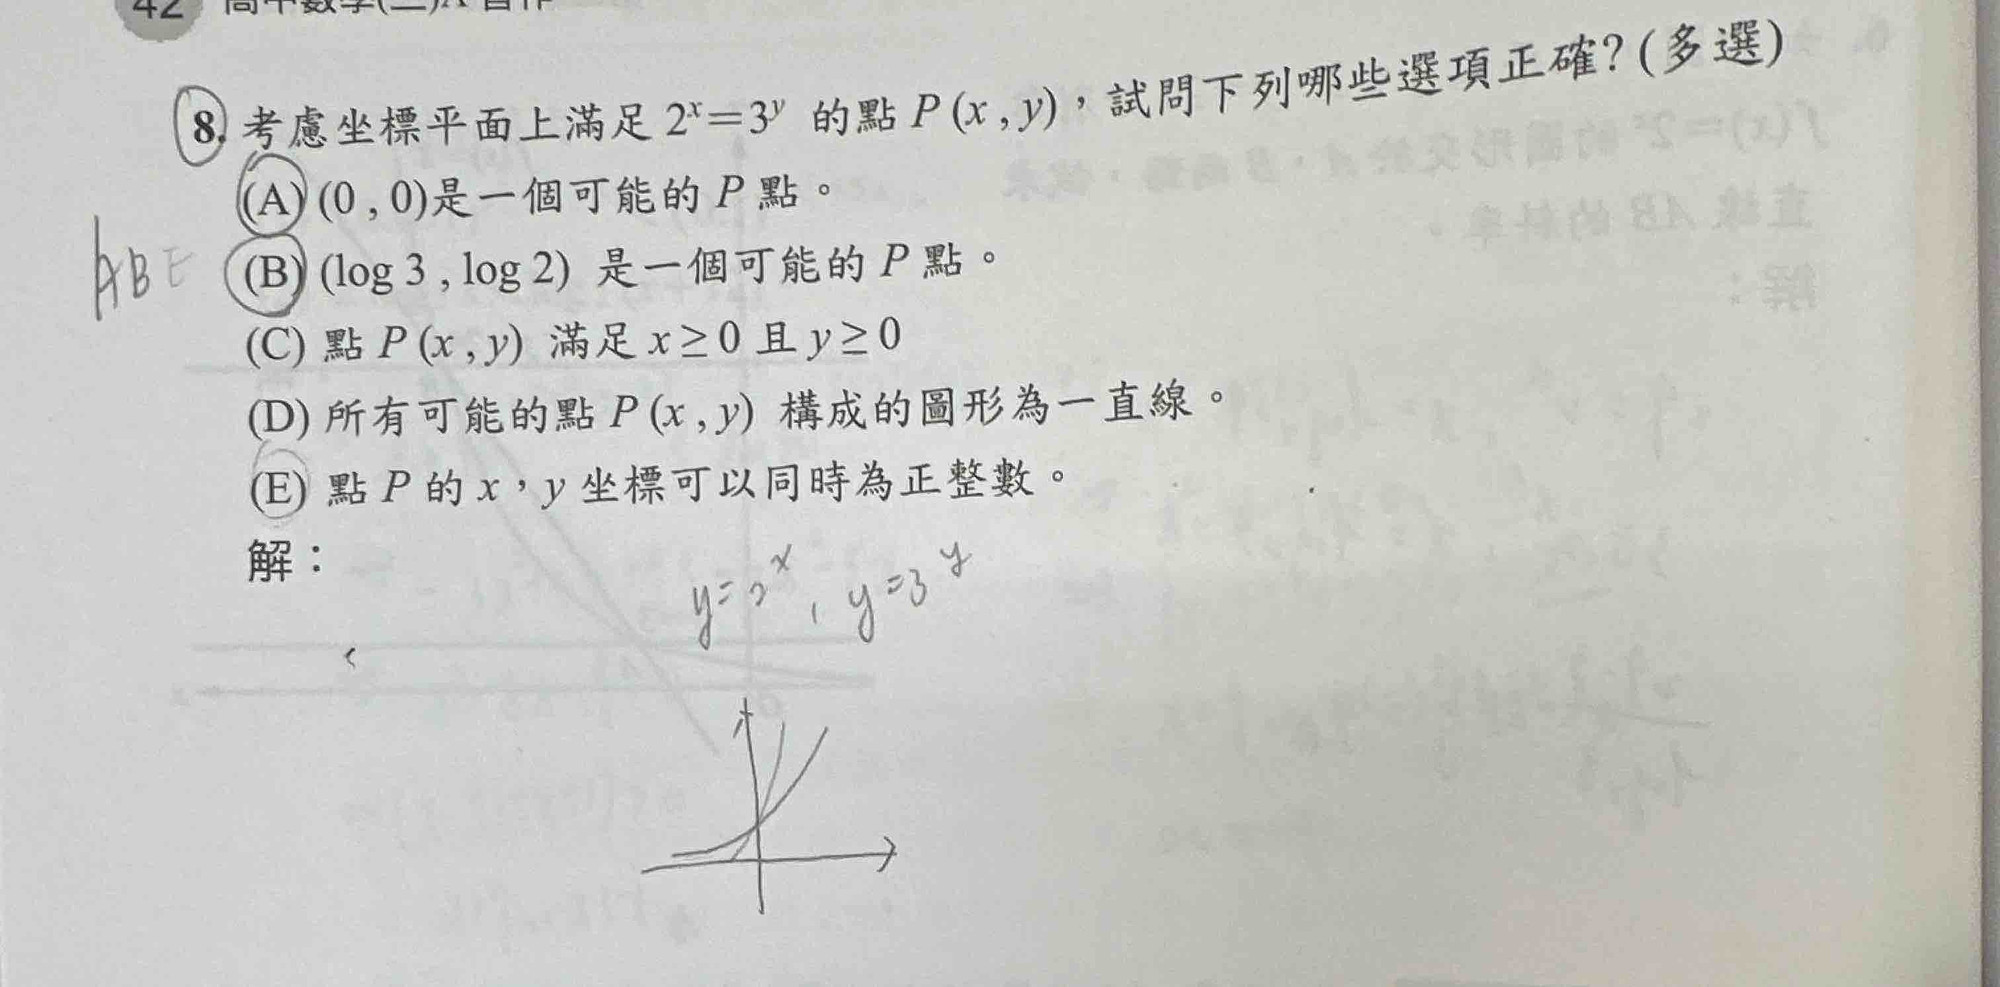 42 高中數學(二)A 習作
8. 考慮坐標平面上滿足 2^x=3^y 的點 P(x,y),試問下列哪些選項正確?(多選)
(A) (0,0)是一個可能的 P 點。
(B) (log 3,log 2) 是一個可能的 P 點。
ABE
(C) 點 P(x,y) 滿足 x≥0 且 y≥0
(D) 所有可能的點 P(x,y) 構成的圖形為一直線。
(E) 點 P 的 x,y 坐標可以同時為正整數。
解:
y=2^x, y=3^y